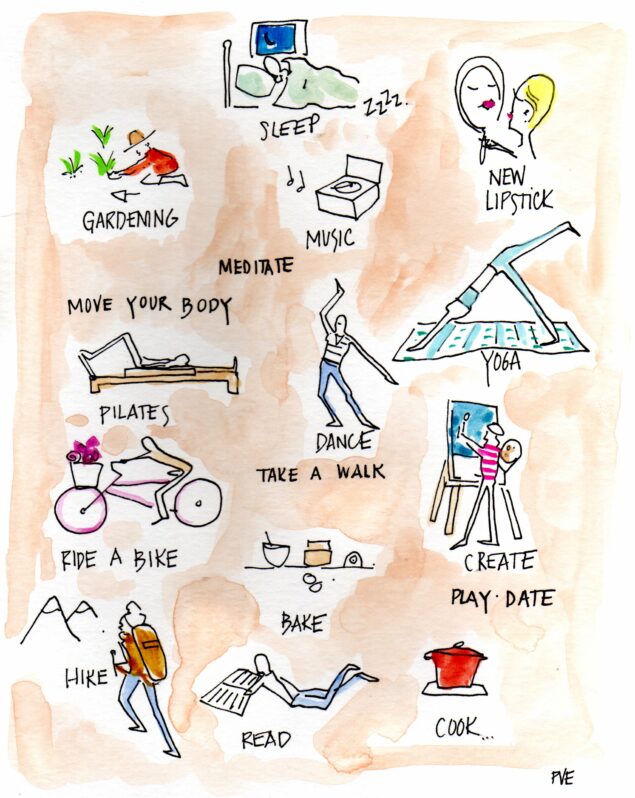 ZZZZ.
SLEEP
NEW
LIPSTICK
GARDENING
MUSIC
MEDITATE
MOVE YOUR BODY
YOGA
PILATES
DANCE
TAKE A WALK
RIDE A BIKE
CREATE
BAKE
PLAY·DATE
HIKE
READ
COOK...
PVE